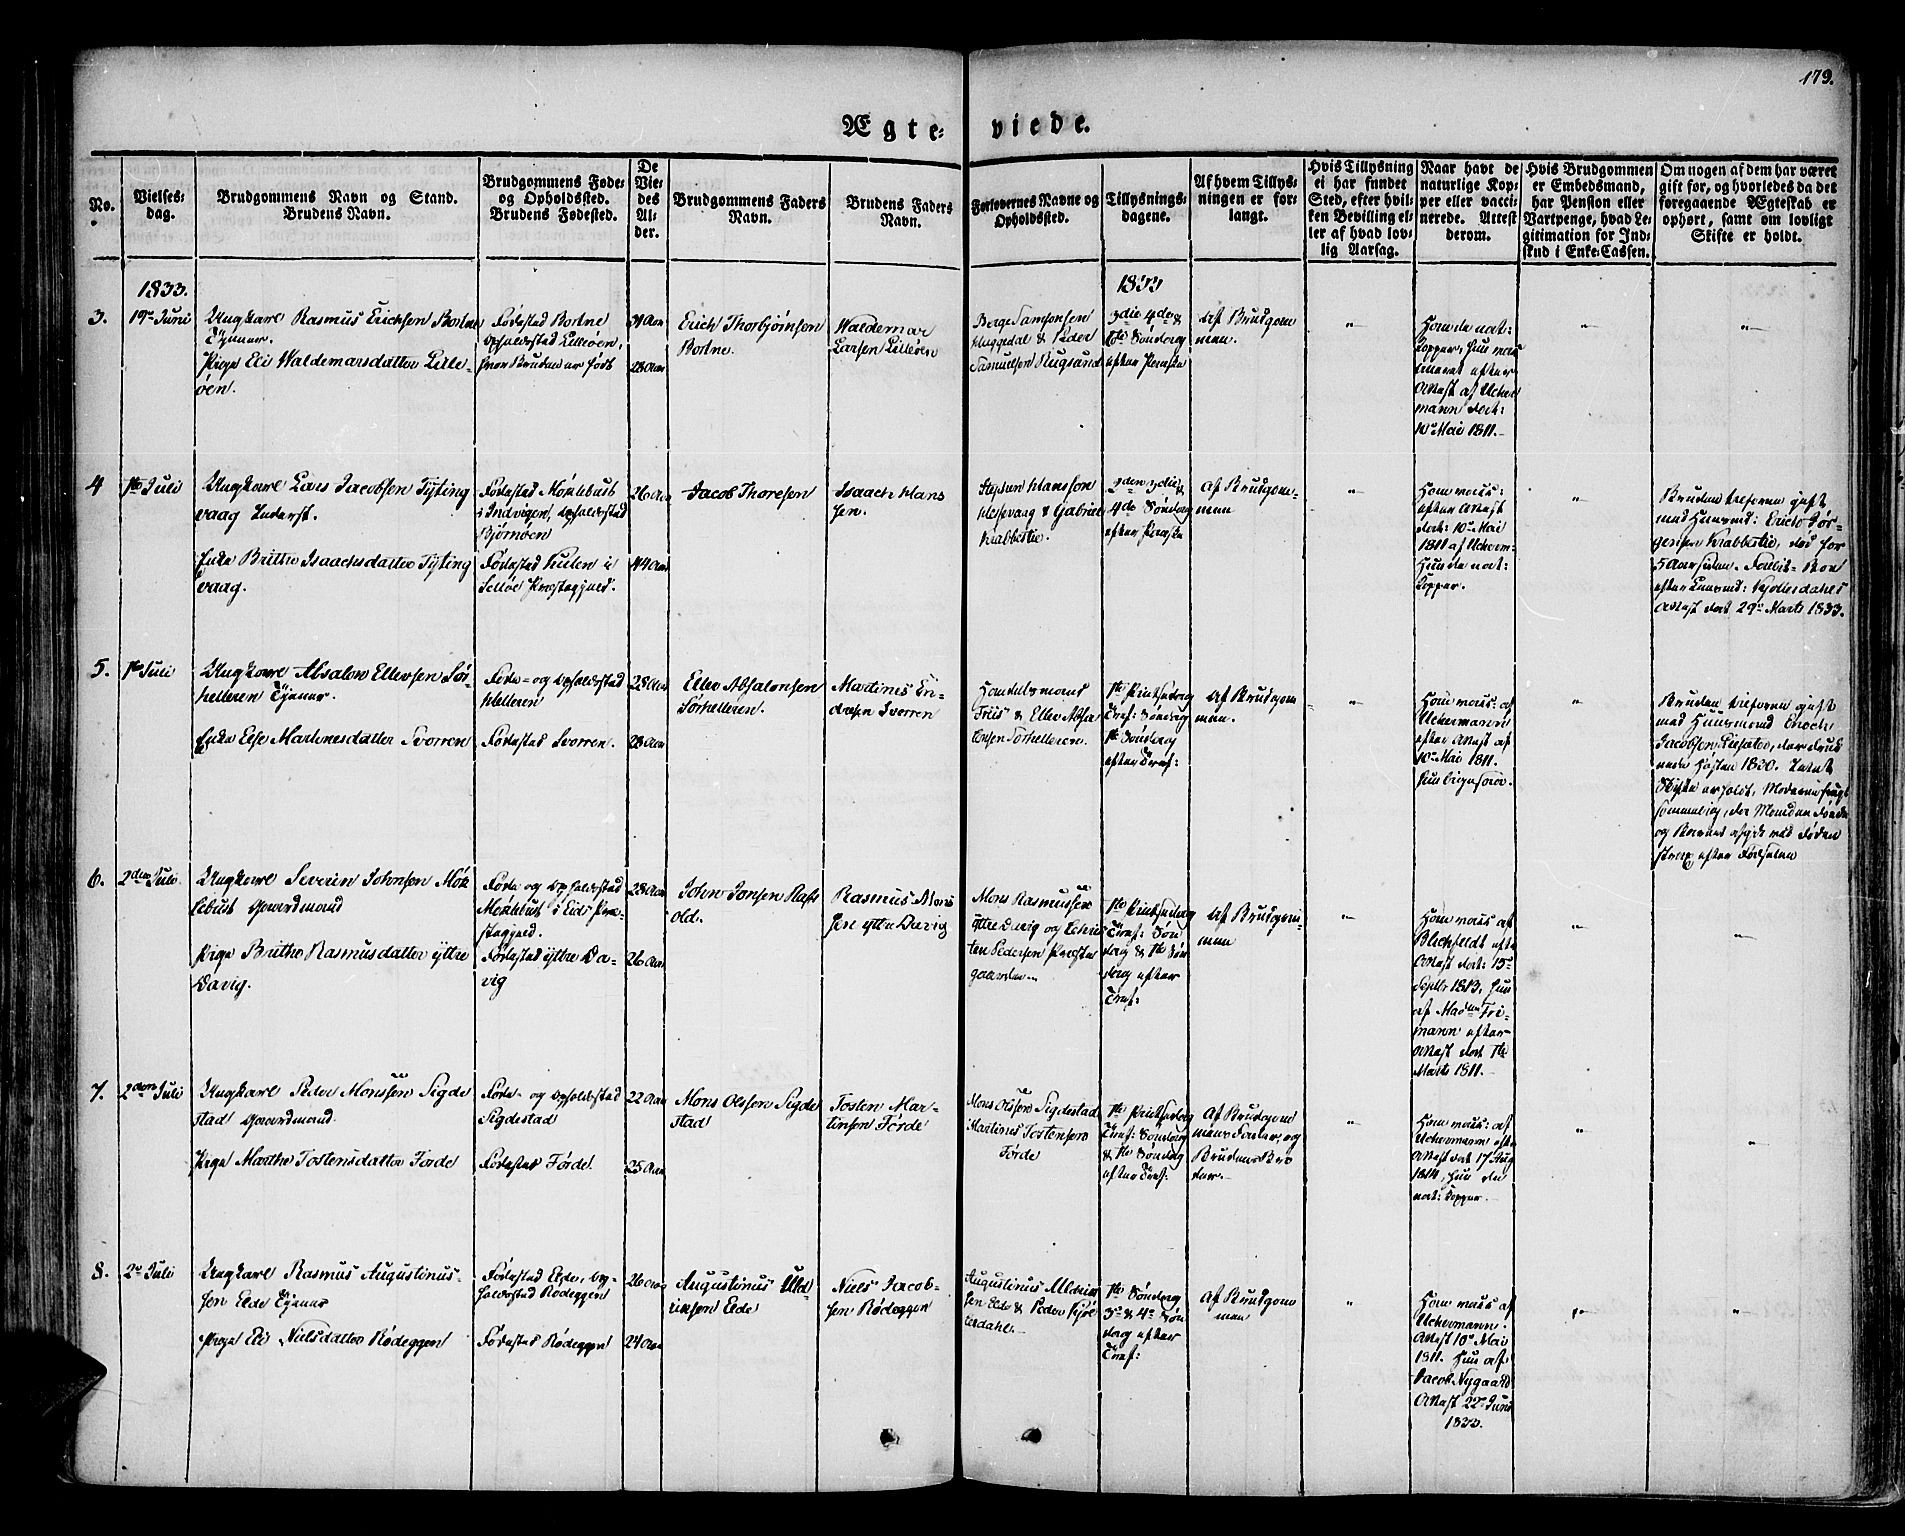 179.
Ægte- viede.
No.
Vielses-
dag.
Brudgommens Navn og Stand.
Brudens Navn.
Brudgommens Føde-
og Opholdssted.
Brudens Fødested.
De
Vie-
des
Al-
der.
Brudgommens Faders
Navn.
Brudens Faders
Navn.
Forlovernes Navne og
Opholdssted.
Tillysnings-
dagene.
Af hvem Tillys-
ningen er for-
langt.
Hvis Tillysning
ei har fundet
Sted, efter hvil-
ken Bevilling el-
ler af hvad lov-
lig Aarsag.
Naar havt de
naturlige Kop-
per eller vacci-
nerede. Attest
derom.
Hvis Brudgommen
er Embedsmand,
har Pension eller
Vartpenge, hvad Le-
gitimation for Ind-
skud i Enke-Cassen.
Om nogen af dem har været
gift før, og hvorledes da det
foregaaende Ægteskab er
ophørt, samt om lovligt
Skifte er holdt.
1833.
1833
3.
19de Juni
Ungkarl Rasmus Erichsen Bortne
Tjener.
Pige Eli Waldemarsdatter Lille-
øen.
Fødested Bortne
Opholdssted Lilleøen,
hvor Bruden er født
28 Aar
Erich Thorbjørnsen
Bortne.
Waldemar
Larsen Lilleøen
Samuelsen Rugsund
3die 4de &
Søndag
efter Paaske
Af Brudgom
men.
"
Ham de nat:
Kopper, hun vac
cineret efter
Attest af Ucher
mann dat:
10de Mai 1811.
"
"
4
1ste Juli
Ungkarl Lars Jacobsen Tyting
vaag Inderst.
Enke Brithe Isaachsdatter Tyting
vaag.
Fødested Møklebust
i Indvigen, Opholdssted
Bjørnøen
Fødested Hulen i
Selløe Præstegjeld.
26 Aar
44 Aar
Jacob Thoresen
Isaach Hans
sen.
Stephen Hansson
& Gabriel
Krabbestie.
2den 3die &
4de Søndag
efter Paaske
Af Brudgom-
men
"
Ham vacc:
efter Attest
dat: 10de Mai
1811 af Ucherm-
Hun de nat:
Kopper.
"
Bruden tilforn gift
med Huusmd: Erich Jør-
gensen Krabbestie, død for
5 Aar siden.
efter Lensmd: Kjollesdahls
Attest dat 29de Marts 1833.
5.
1ste Juli
Ungkarl Absalon Ellevsen Sør-
helleren Tjener.
Enke Else Martinesdatter Svorren
Føde- og Opholdssted
Helleren
Fødested Svorren.
28 Aar
28 Aar
Ellev Absalonsen
Sørhelleren.
Martines En-
dresen Svorren
Handelsmand
Friis & Ellev Absa
lonsen Sørhelleren.
1ste Pintsedag
Tref: Søndag
1ste Søndag
efter Tref:
Af Brudgom
men.
"
Ham vacc: af
Uchermann
efter Attest af
10de Mai 1811.
"
Bruden tilforn gift
med Huusmand Enoch
Jacobsen der druk
nede Høsten 1830. Intet
Skifte er holdt,
og Barnet afgik ved Døden
strax efter Fødselen
6.
2den Juli
Ungkarl Severin Johnsen Møk
lebust Gaardmand
Pige Brithe Rasmusdatter yttre
Davig.
Føde og Opholdssted
Møklebust i Eids Præ-
stegjeld.
Fødested yttre Da-
vig
28 Aar
26 Aar
John Jonsen
old.
Rasmus Mons
sen yttre Davig
Mons Rasmussen
yttre Davig og
ten Pedersen Præste
gaarden.
1ste Pintsedag
Tref: Søn
dag & 1ste Søn
dag efter
Tref:
Af Brudgom-
men
"
Ham vacc af
Blichfeldt efter
Attest dat: 15de
Septbr 1813, Hun
af Madme Fri-
mann efter
Attest dat 1ste
Marts 1811.
"
"
7.
2den Juli
Ungkarl Peder Monssen Sigde
stad Gaardmand
Pige Marthe Tostensdatter Førde
Føde- og Opholdssted
Sigdestad
Fødested Førde.
22 Aar
25 Aar
Mons Olssen Sigde
stad
Tosten Mar-
tinsen Førde
Mons Olssen Sigdestad
Martinus Tostensen
Førde
1ste Pintsedag
Tref: Søndag
& 1ste Søndag
efter Tref:
Af Brudgom
mens Fader, og
Brudens Bro
der.
"
Ham vacc: af
Uchermann efter
Attest dat 17 Aug
1814, Hun de
nat: Kopper.
"
"
8.
2de Juli
Ungkarl Rasmus Augustinus-
sen Elde Tjener
Pige Eli Nielsdatter Rødeggen
Fødested Elde, Op-
holdssted Rødeggen
Fødested Rødeggen
26 Aar
24 Aar
Augustinus Uld
riksen Elde
Niels Jacob-
sen Rødeggen
Augustinus Uldrik
sen Elde & Peder
1ste Søndag
3de & 4de Søn
dag efter
Tref:
Af Brudgom
men
"
Ham vacc af
Uchermann.
Attest 10de Mai
1811. Hun af
Jacob Nygaard
Attest 22de Juni
1833.
"
"